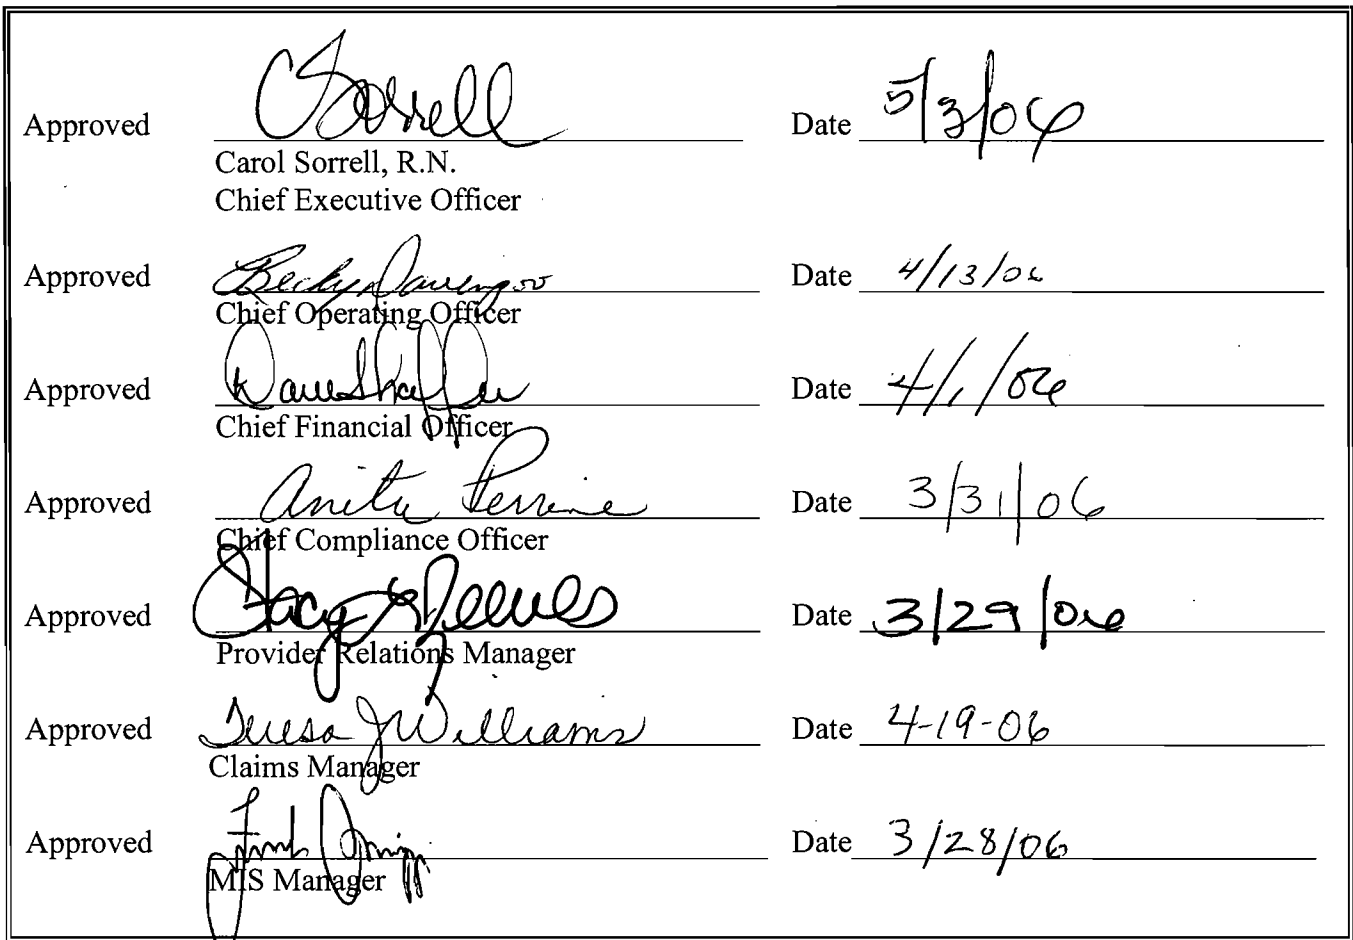 Approved CSorrell Date 5/3/06
Carol Sorrell, R.N.
Chief Executive Officer
Approved Becky Date 4/13/06
Chief Operating Officer
Approved Date 4/1/06
Chief Financial Officer
Approved Anita Perrine Date 3/31/06
Chief Compliance Officer
Approved Stacy Reeves Date 3/29/06
Provider Relations Manager
Approved Teresa J Williams Date 4-19-06
Claims Manager
Approved Date 3/28/06
MIS Manager